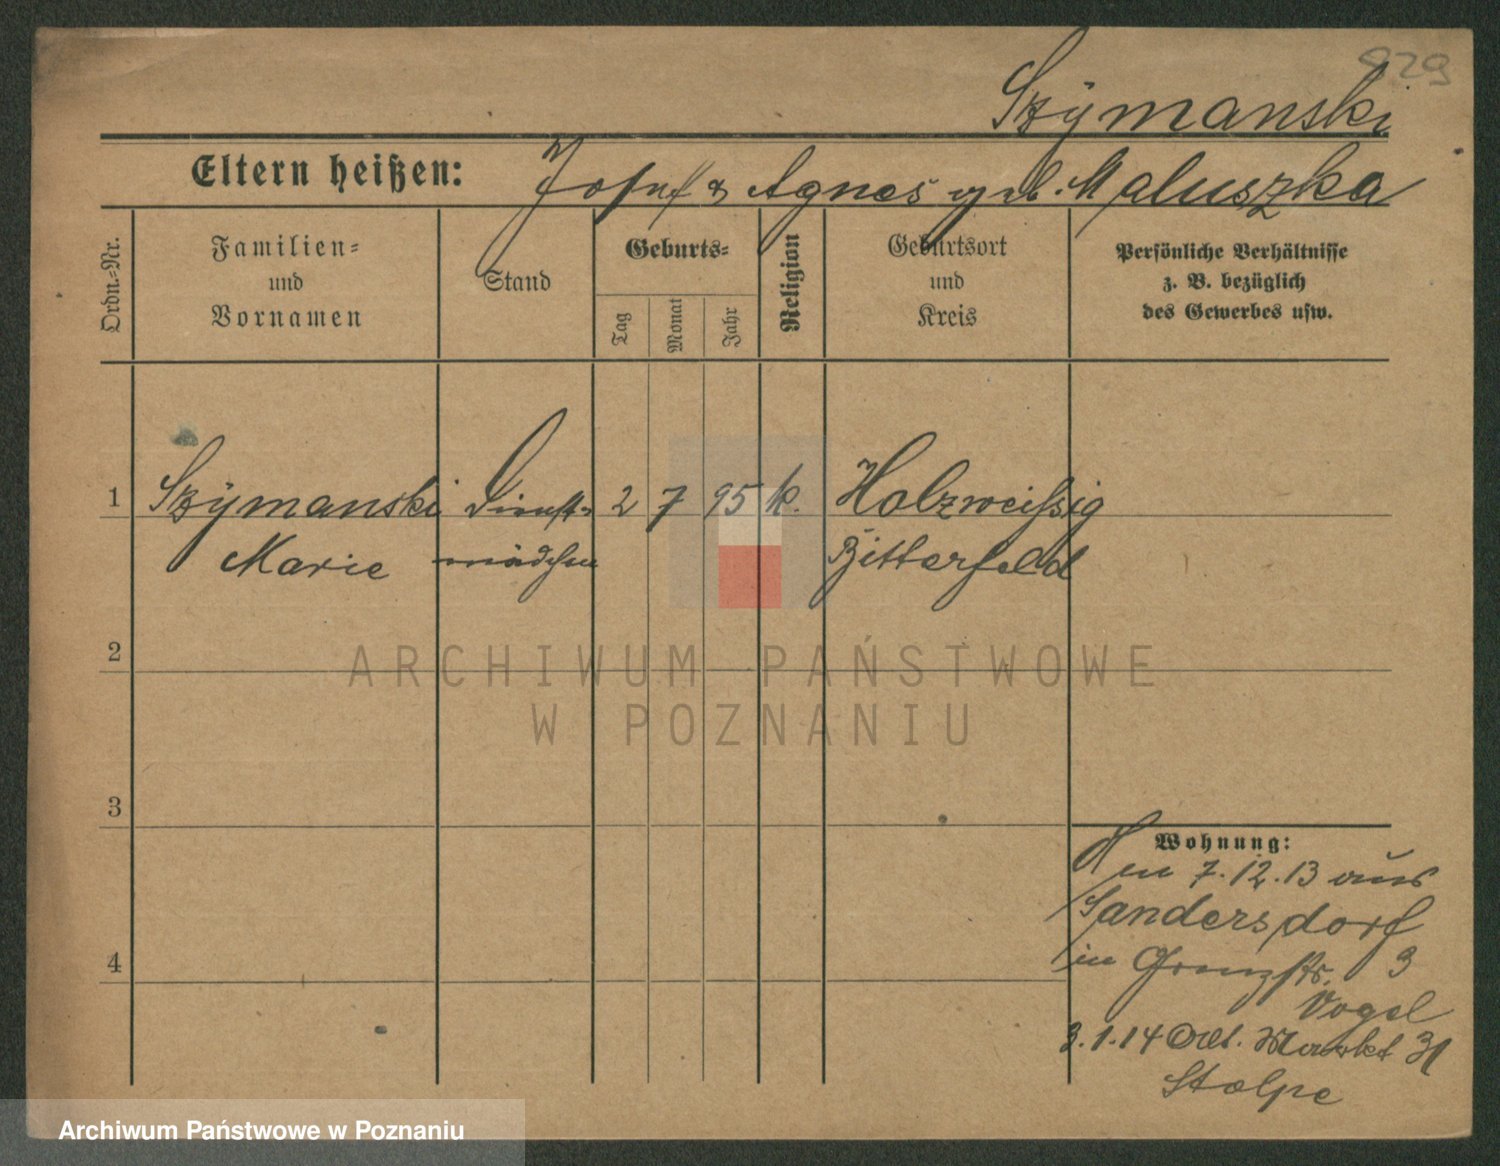 829
Szymanski
Eltern heißen: Josef & Agnes geb. Maluszka
Ordn.=Nr.
Familien=
und
Vornamen
Stand
Geburts=
Tag
Monat
Jahr
Religion
Geburtsort
und
Kreis
Persönliche Verhältnisse
z. B. bezüglich
des Gewerbes usw.
1 Szymanski Dienst= 2 7 95 k. Holzweißig
Marie mädchen Bitterfeld
2
ARCHIWUM PAŃSTWOWE
W POZNANIU
3
Wohnung:
7.12.13 aus
Sandersdorf
in Grenzstr. 3
Vogel
4
3.1.14 Alt. Markt
Stolpe
Archiwum Państwowe w Poznaniu